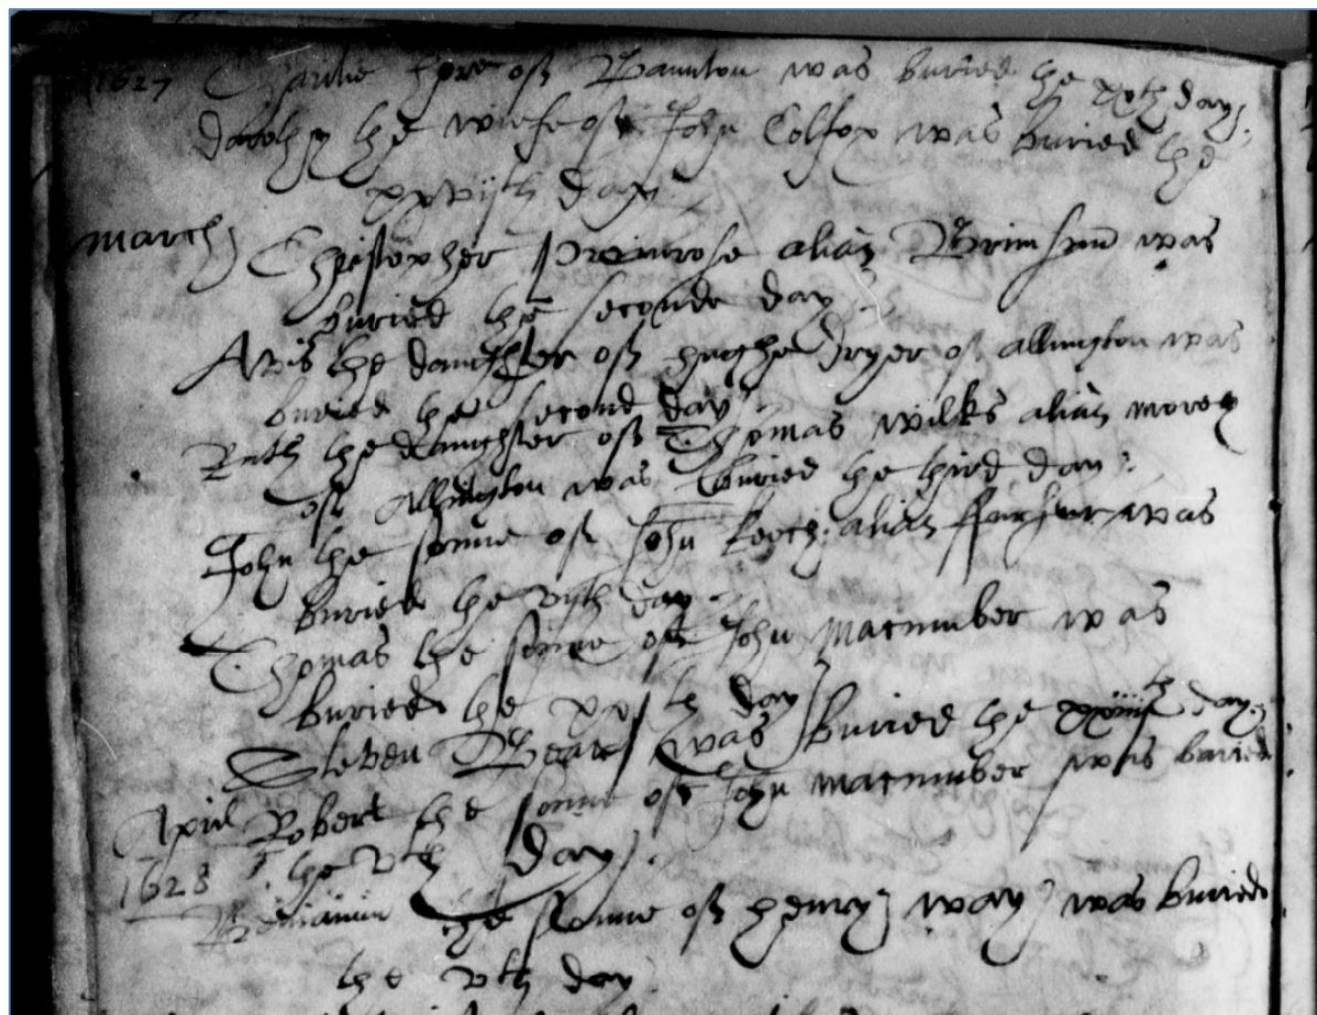 1627 Charitie hore of Baunton was buried the xxth day
dorothy the wiefe of John Colfox was buried the
xxviijth day
march Christopher Primrose alias Brimson was
buried the seconde day
Avis the daughter of hughe dryer of allington was
buried the second day
Ruth the daughter of Thomas wilks alias morey
of Allington was buried the third day
John the sonne of John keech alias was
buried the vijth day
Thomas the sonne of John Macumber was
buried the day
Steven Beare was buried the xxiiijth day
April Robert the sonne of John macumber was buried
1628 the vth day
Beniamin the sonne of henry way was buried
the vth day